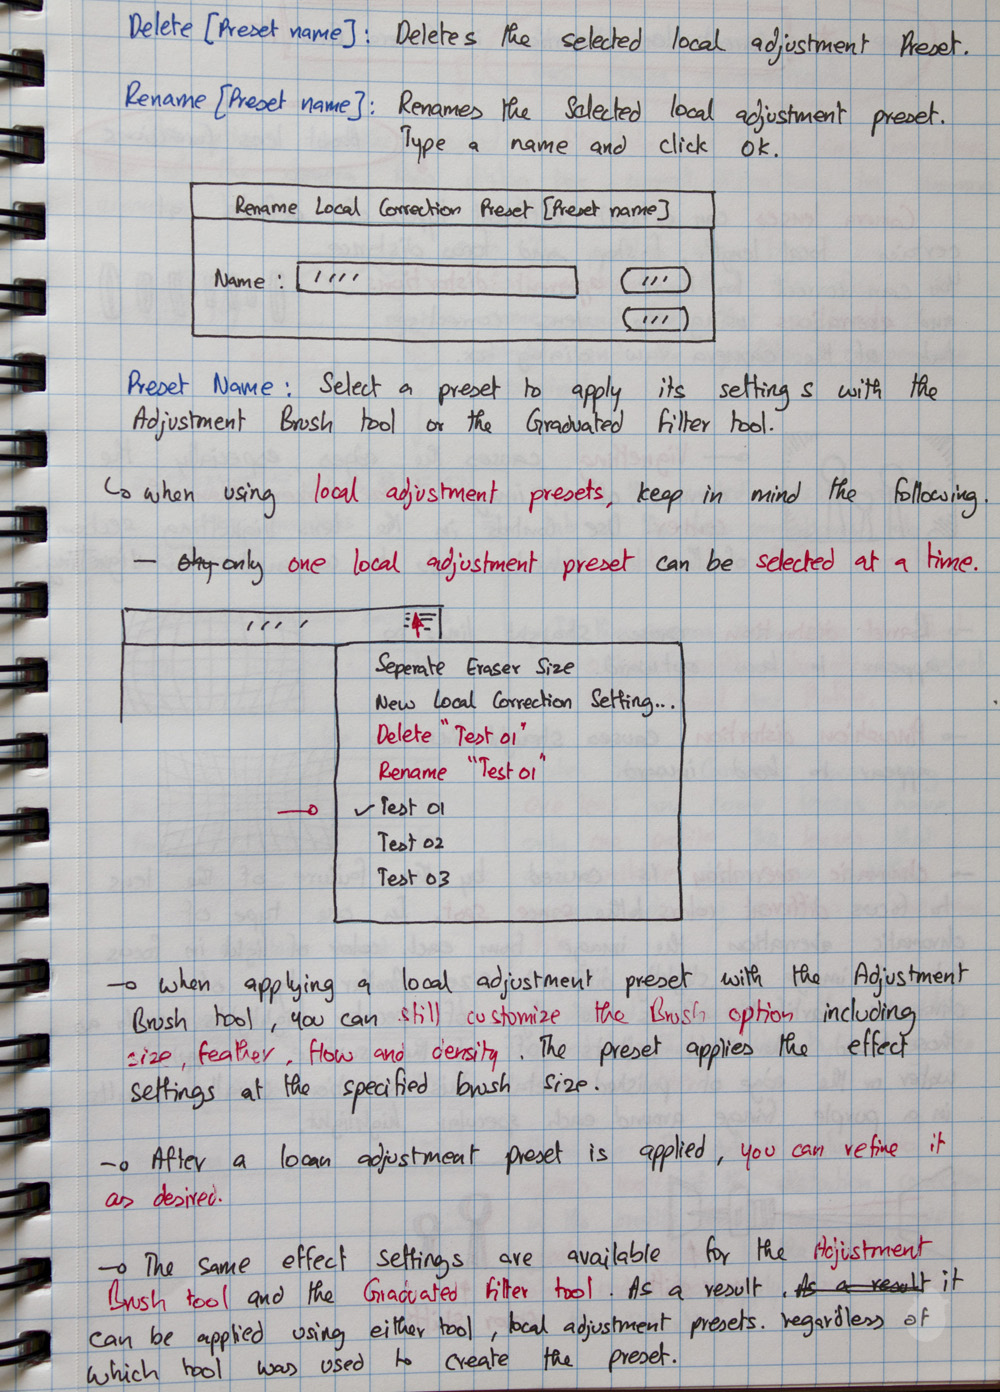 Delete [Preset name]: Deletes the selected local adjustment Preset.
Rename [Preset name]: Renames the Selected local adjustment preset.
Type a name and click OK.
Rename Local Correction Preset [Preset name]
Name:
Preset Name: Select a preset to apply its settings with the
Adjustment Brush tool or the Graduated Filter tool.
when using local adjustment presets, keep in mind the following.
– only one local adjustment preset can be selected at a time.
Seperate Eraser Size
New Local Correction Setting...
Delete "Test 01"
Rename "Test 01"
✓ Test 01
Test 02
Test 03
when applying a local adjustment preset with the Adjustment
Brush tool, you can still customize the Brush option including
size, feather, flow and density. The preset applies the effect
settings at the specified brush size.
After a locan adjustment preset is applied, you can refine it
as desired.
The same effect settings are available for the Adjustment
Brush tool and the Graduated filter tool. As a result, As a result it
can be applied using either tool, local adjustment presets. regardless of
which tool was used to create the preset.